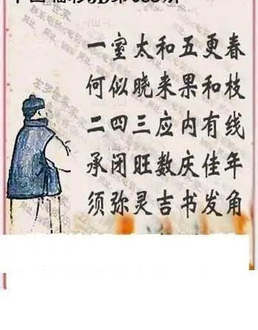 一室太和五更春
何似晓来果和枝
二四三应内有线
承闭旺数庆佳年
须弥灵吉书发角